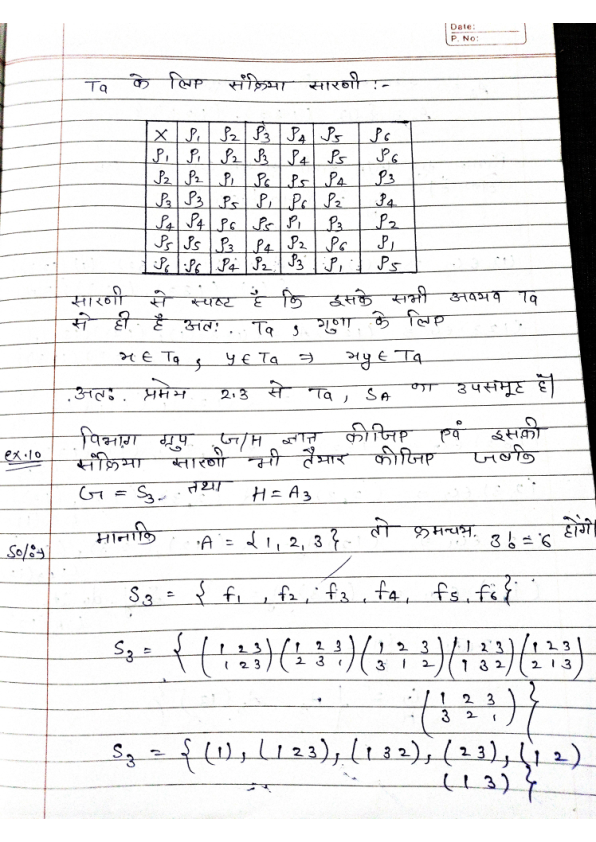 Date:
P. No:
Ta के लिए संक्रिया सारणी :-
X ρ1 ρ2 ρ3 ρ4 ρ5 ρ6
ρ1 ρ1 ρ2 ρ3 ρ4 ρ5 ρ6
ρ2 ρ2 ρ1 ρ6 ρ5 ρ4 ρ3
ρ3 ρ3 ρ5 ρ1 ρ6 ρ2 ρ4
ρ4 ρ4 ρ6 ρ5 ρ1 ρ3 ρ2
ρ5 ρ5 ρ3 ρ4 ρ2 ρ6 ρ1
ρ6 ρ6 ρ4 ρ2 ρ3 ρ1 ρ5
सारणी से स्पष्ट है कि इसके सभी अवयव Ta
से ही है अतः Ta , गुणा के लिए
x ∈ Ta , y ∈ Ta ⇒ xy ∈ Ta
अतः प्रमेय 2.3 से Ta , SA का उपसमूह है|
ex.10 विभाग ग्रुप G/H ज्ञात कीजिए एवं इसकी
संक्रिया सारणी भी तैयार कीजिए जबकि
G = S3 तथा H = A3
Sol:→ मानाकि A = {1, 2, 3} तो क्रमचय 3! = 6 होंगे
S3 = { f1 , f2 , f3 , f4 , f5 , f6 }
S3 = { (1 2 3) (1 2 3) (1 2 3) (1 2 3) (1 2 3)
(1 2 3) (2 3 1) (3 1 2) (1 3 2) (2 1 3)
(1 2 3)
(3 2 1) }
S3 = { (1) , (1 2 3) , (1 3 2) , (2 3) , (1 2)
(1 3) }